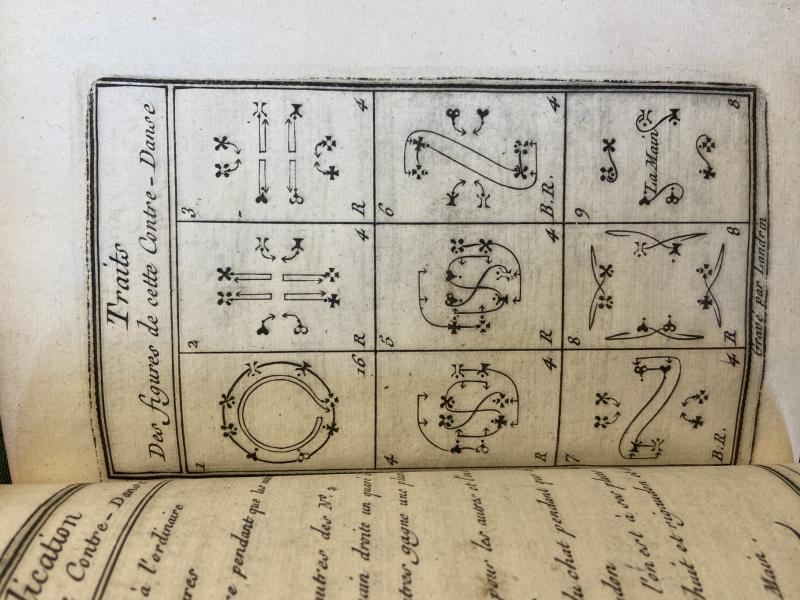 Traits
Des figures de cette Contre-Danse
1
16 R
2
4 R
3
4 R
4
4 R
5
4 R
6
4 B.R.
7
4 B.R.
8
8 R
9
La Main
8
Gravé par Landrin
lication
Contre-Danse
à l'ordinaire
ures
re pendant que les
autres des Nº.
main droite un quart
tres gagne une
pour les autres et
du chat pendant
l'on est à ses
huit et rigaudon
Main.